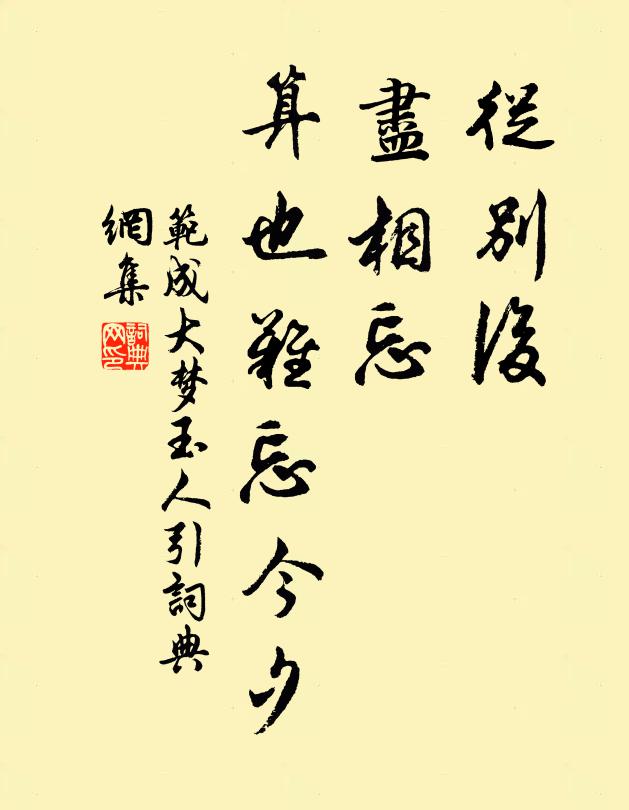 從別後
盡相忘
算也難忘今夕
範成大梦玉人引詞典
網集
詞典
网印